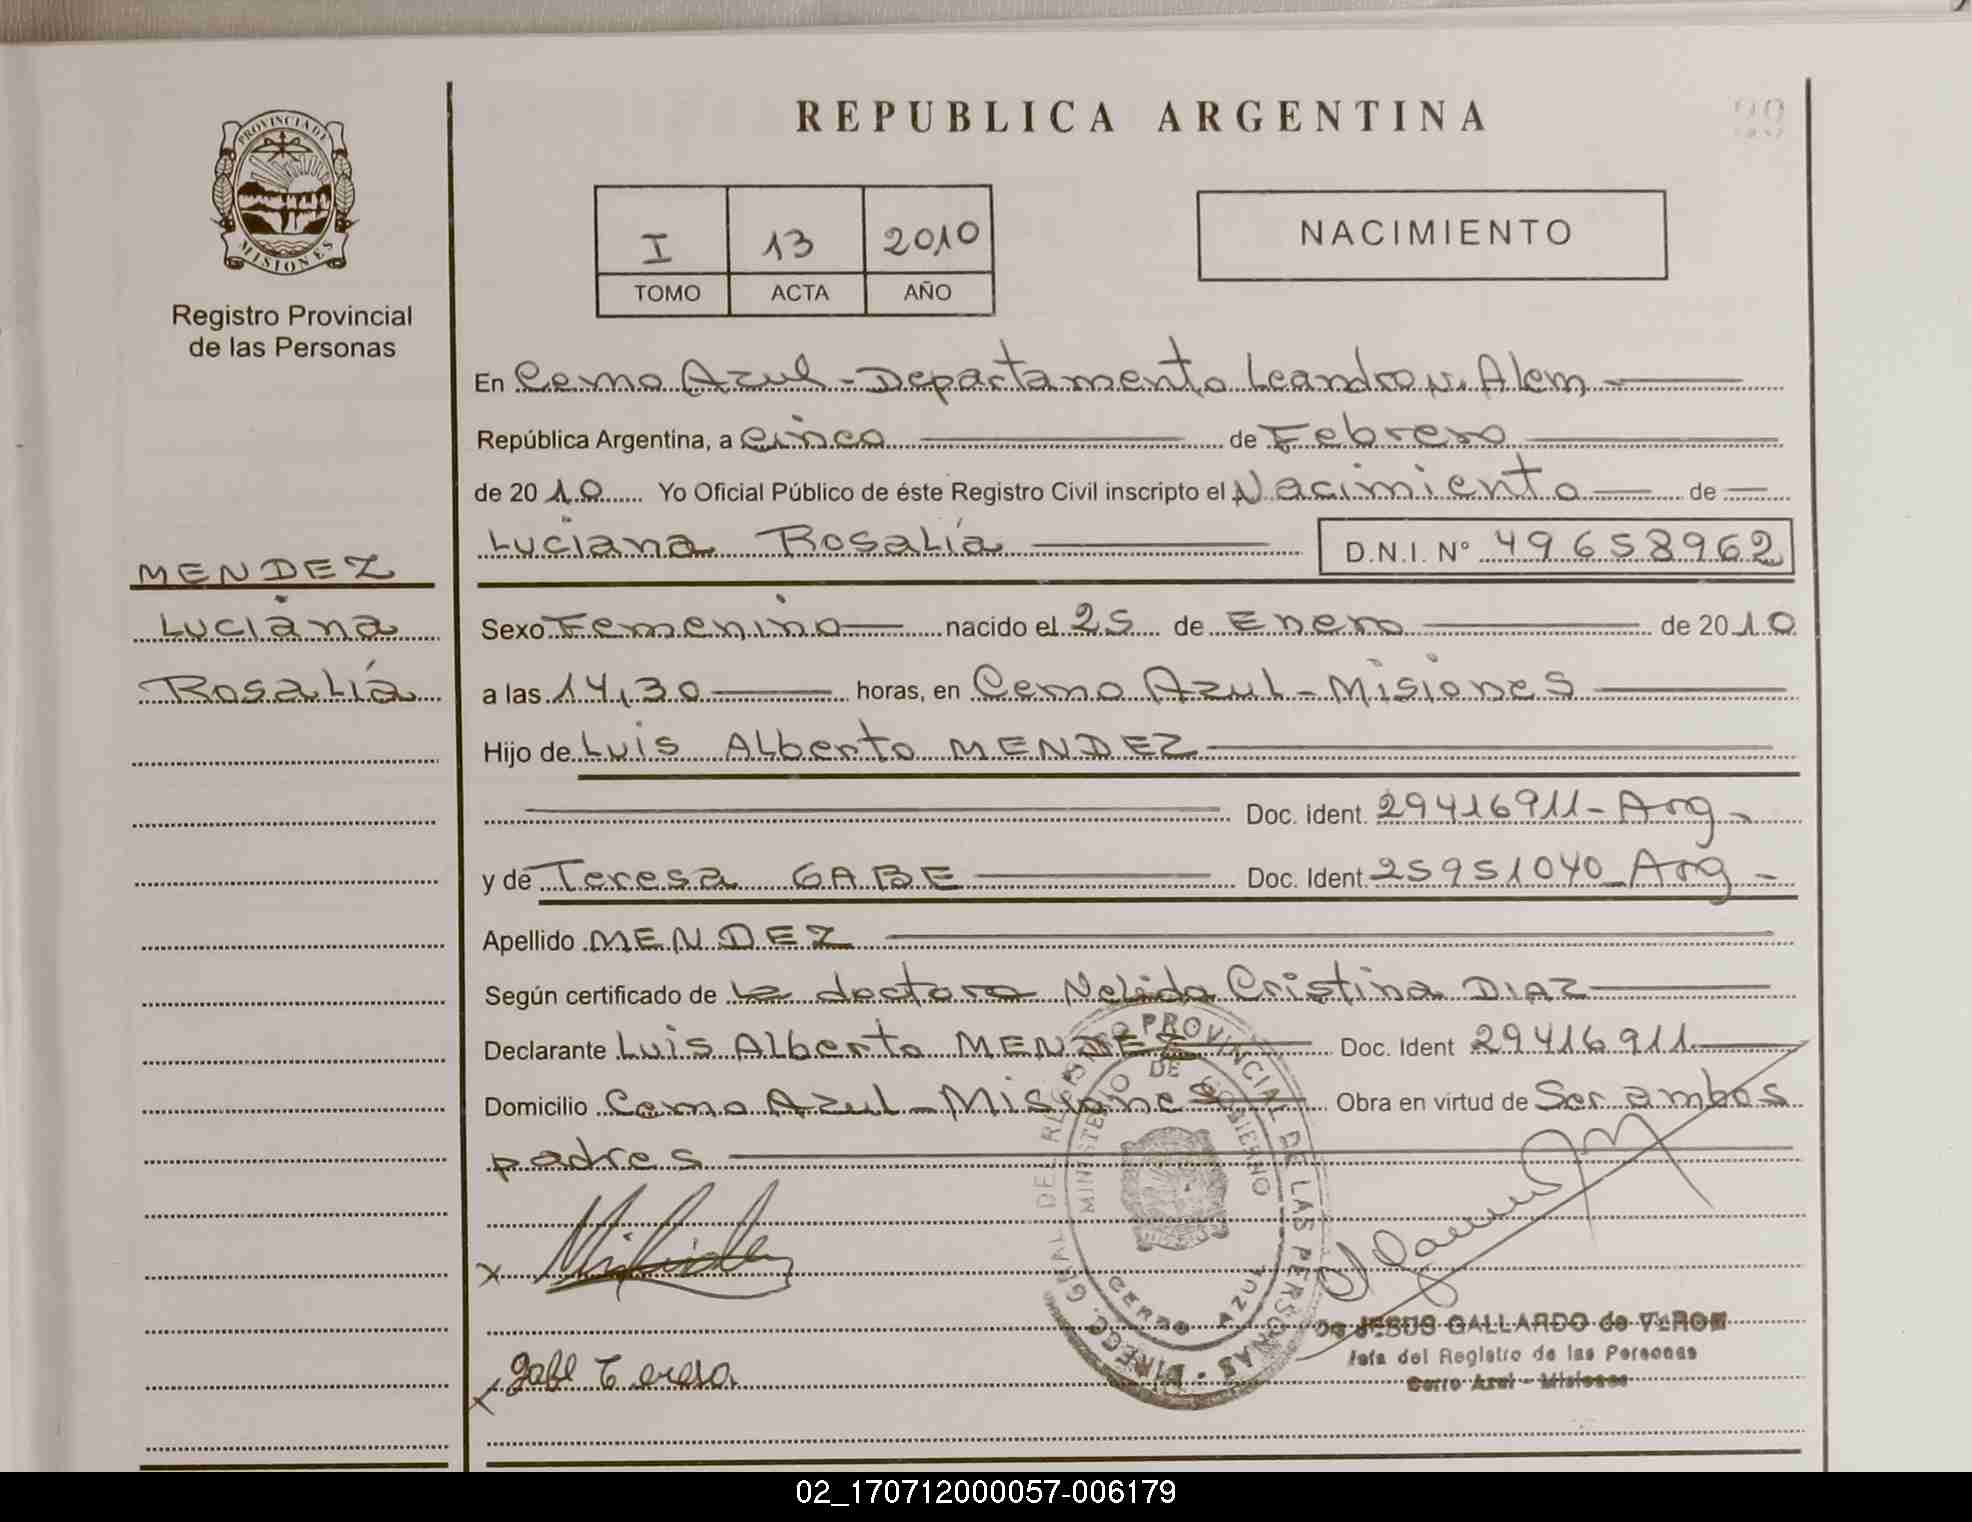 REPUBLICA ARGENTINA
PROVINCIA DE
MISIONES
Registro Provincial
de las Personas
I 13 2010
TOMO ACTA AÑO
NACIMIENTO
En Cerro Azul - Departamento Leandro N. Alem
República Argentina, a cinco de Febrero
de 2010 Yo Oficial Público de éste Registro Civil inscripto el Nacimiento de
Luciana Rosalía D.N.I. N° 49658962
MENDEZ
Luciana
Rosalía
Sexo Femenino nacido el 25 de Enero de 2010
a las 14,30 horas, en Cerro Azul - Misiones
Hijo de Luis Alberto MENDEZ
Doc. Ident. 29416911 - Arg -
y de Teresa GABE Doc. Ident. 25951040 - Arg -
Apellido MENDEZ
Según certificado de la doctora Nelida Cristina DIAZ
Declarante Luis Alberto MENDEZ Doc. Ident 29416911
Domicilio Cerro Azul - Misiones Obra en virtud de Ser ambos
padres
DIRECC. GRAL DEL REGISTRO PROVINCIAL DE LAS PERSONAS
MINISTERIO DE GOBIERNO
CERRO AZUL
x
x Gabe Teresa
De JESUS GALLARDO de
Jefa del Registro de las Personas
Cerro Azul - Misiones
02_170712000057-006179